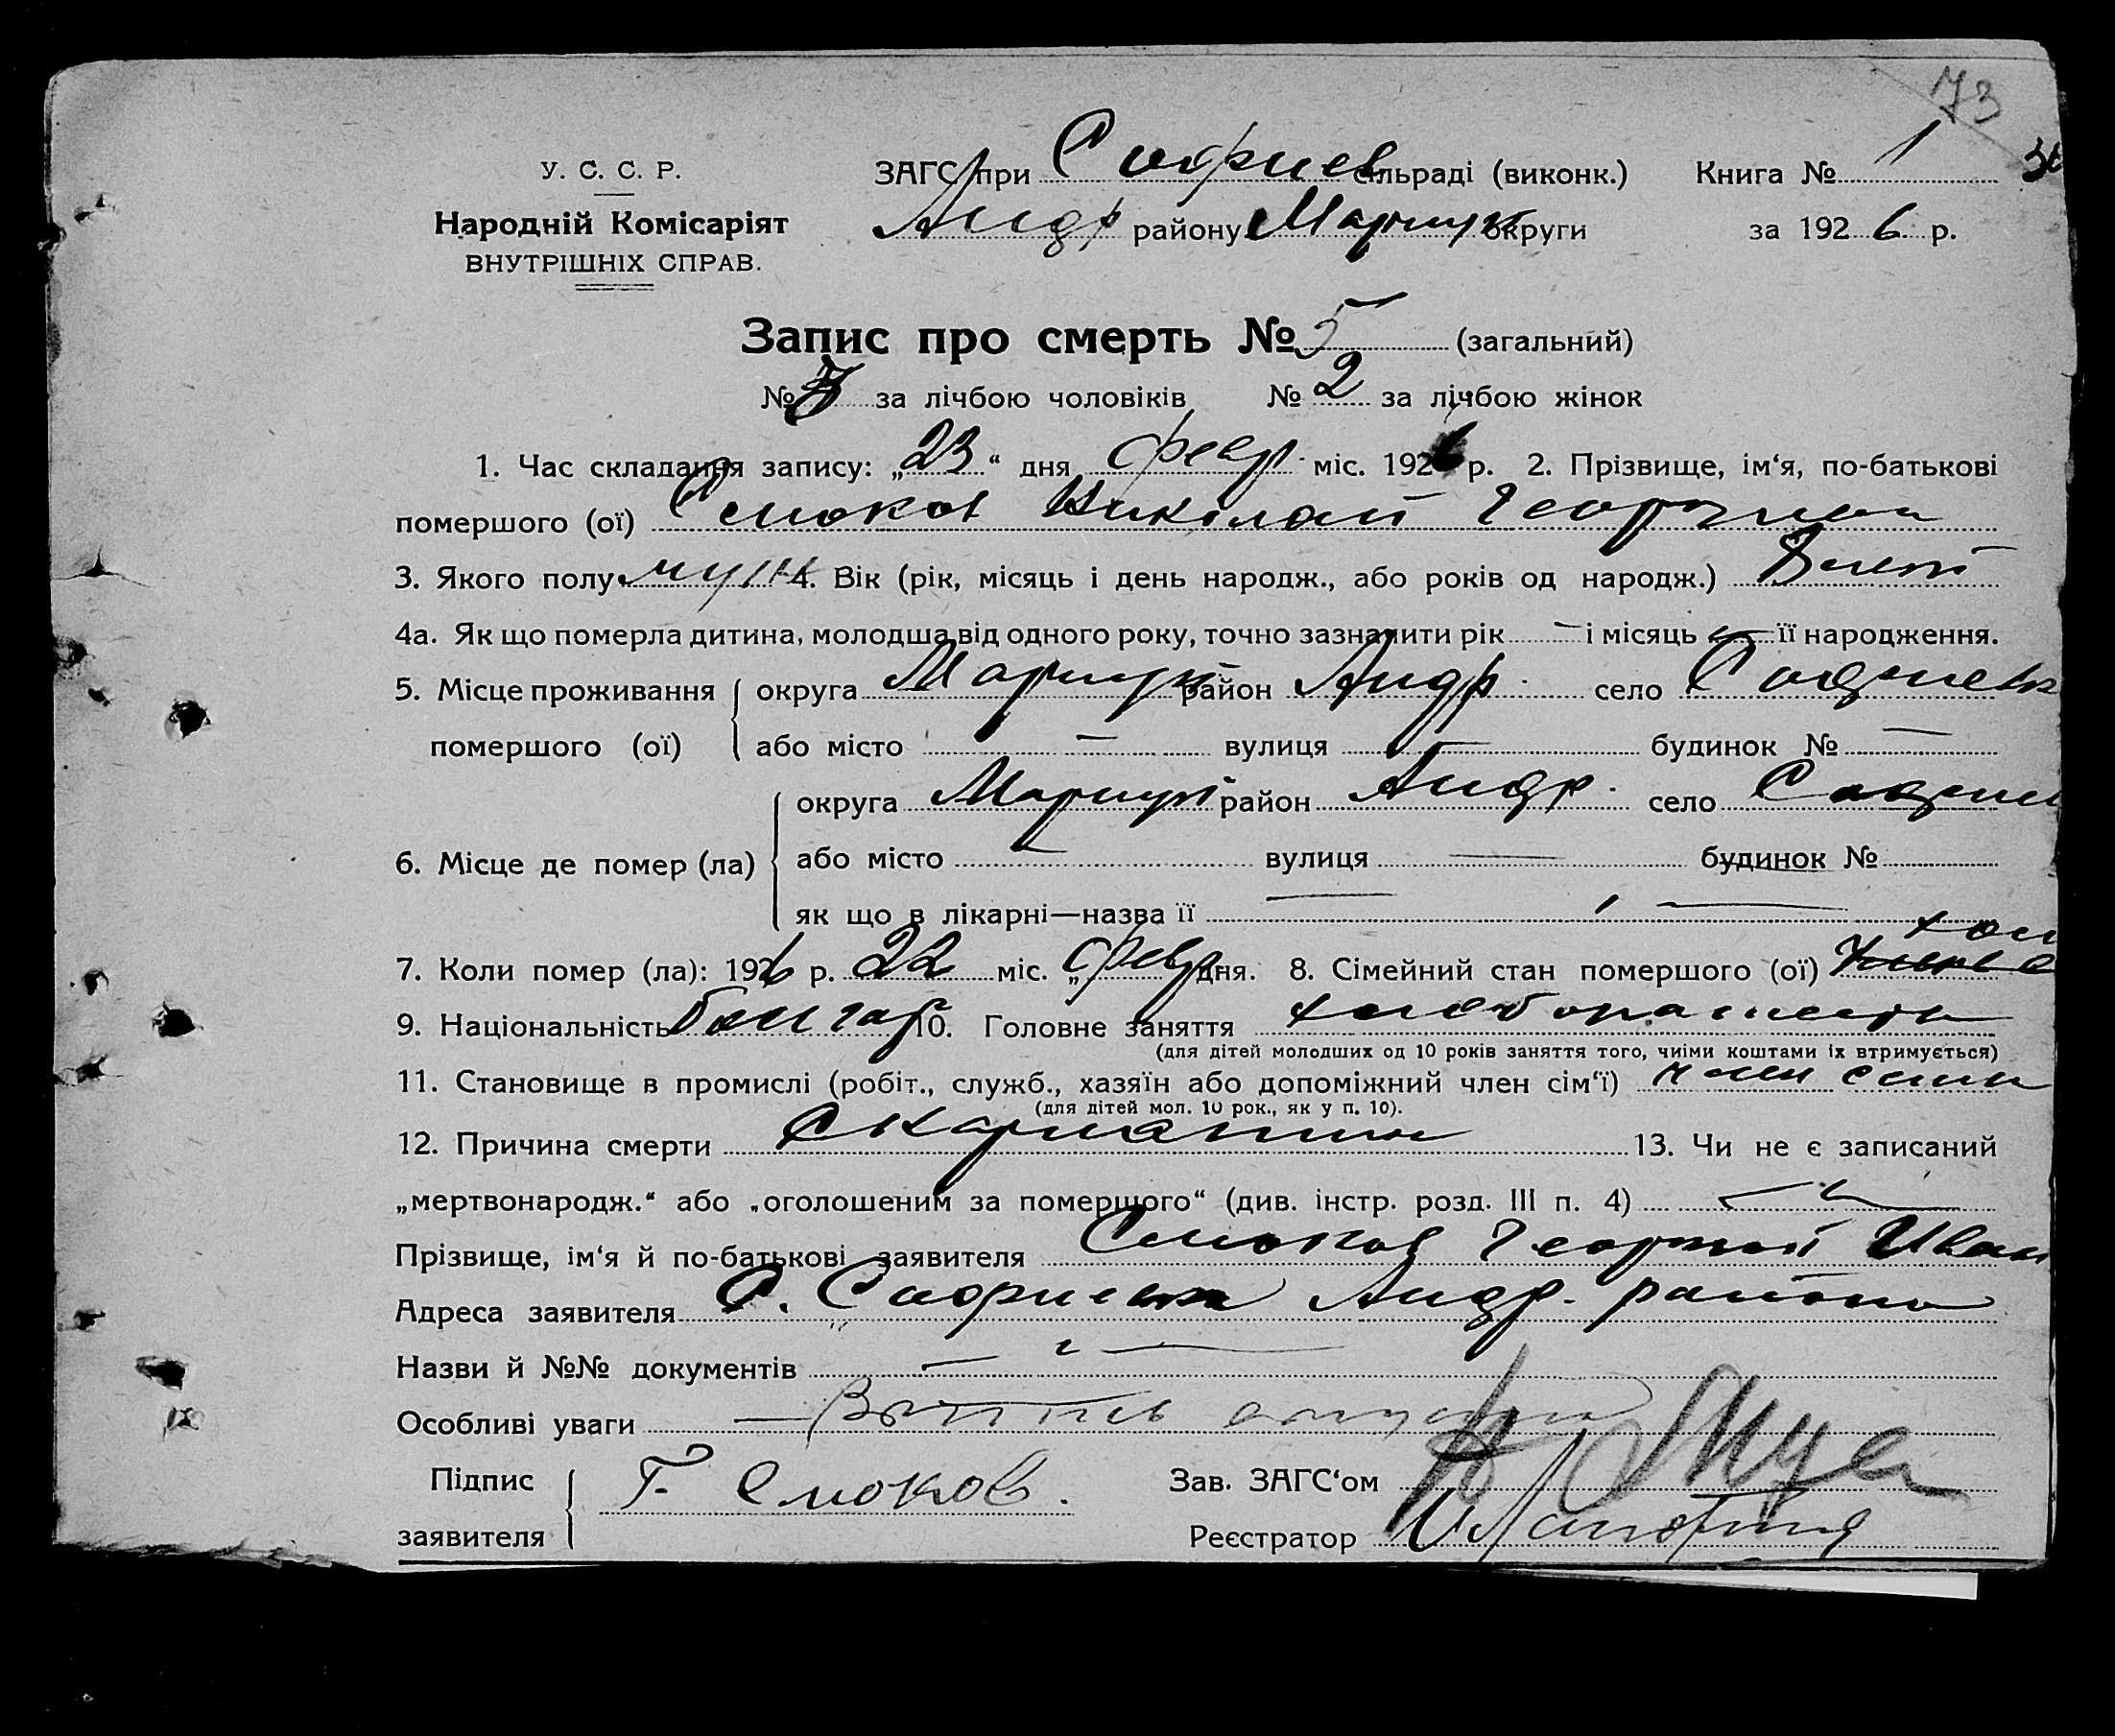 73
У. С. С. Р.
Народній Комісаріят
ВНУТРІШНІХ СПРАВ.
ЗАГС при Софиев сільраді (виконк.) Книга № 1
Андр району Мариуп округи за 1926 р.
Запис про смерть № 5 (загальний)
№ 3 за лічбою чоловіків № 2 за лічбою жінок
1. Час складання запису: „23“ дня февр міс. 1926 р. 2. Прізвище, ім‘я, по-батькові
помершого (ої) Смоков Николай Георгиев
3. Якого полу муж 4. Вік (рік, місяць і день народж., або років од народж.) лет
4а. Як що померла дитина, молодша від одного року, точно зазначити рік — і місяць — її народження.
5. Місце проживання помершого (ої) округа Мариуп район Андр. село Софиевк
або місто — вулиця — будинок № —
6. Місце де помер (ла) округа Мариуп район Андр. село Софи
або місто — вулиця — будинок №
як що в лікарні—назва її —
7. Коли помер (ла): 1926 р. 22 міс. „февр дня. 8. Сімейний стан помершого (ої) хол
9. Національність болгар 10. Головне заняття хлебопашець
(для дітей молодших од 10 років заняття того, чиїми коштами їх втримується)
11. Становище в промислі (робіт., служб., хазяїн або допоміжний член сім‘ї) член семи
(для дітей мол. 10 рок., як у п. 10).
12. Причина смерти Скарлатина 13. Чи не є записаний
„мертвонародж.“ або „оголошеним за помершого“ (див. інстр. розд. III п. 4) —
Прізвище, ім‘я й по-батькові заявителя Смоков Георгий Иван
Адреса заявителя С. Софиевка Андр. района
Назви й №№ документів —
Особливі уваги
Підпис заявителя Г. Смоков.
Зав. ЗАГС‘ом
Реєстратор